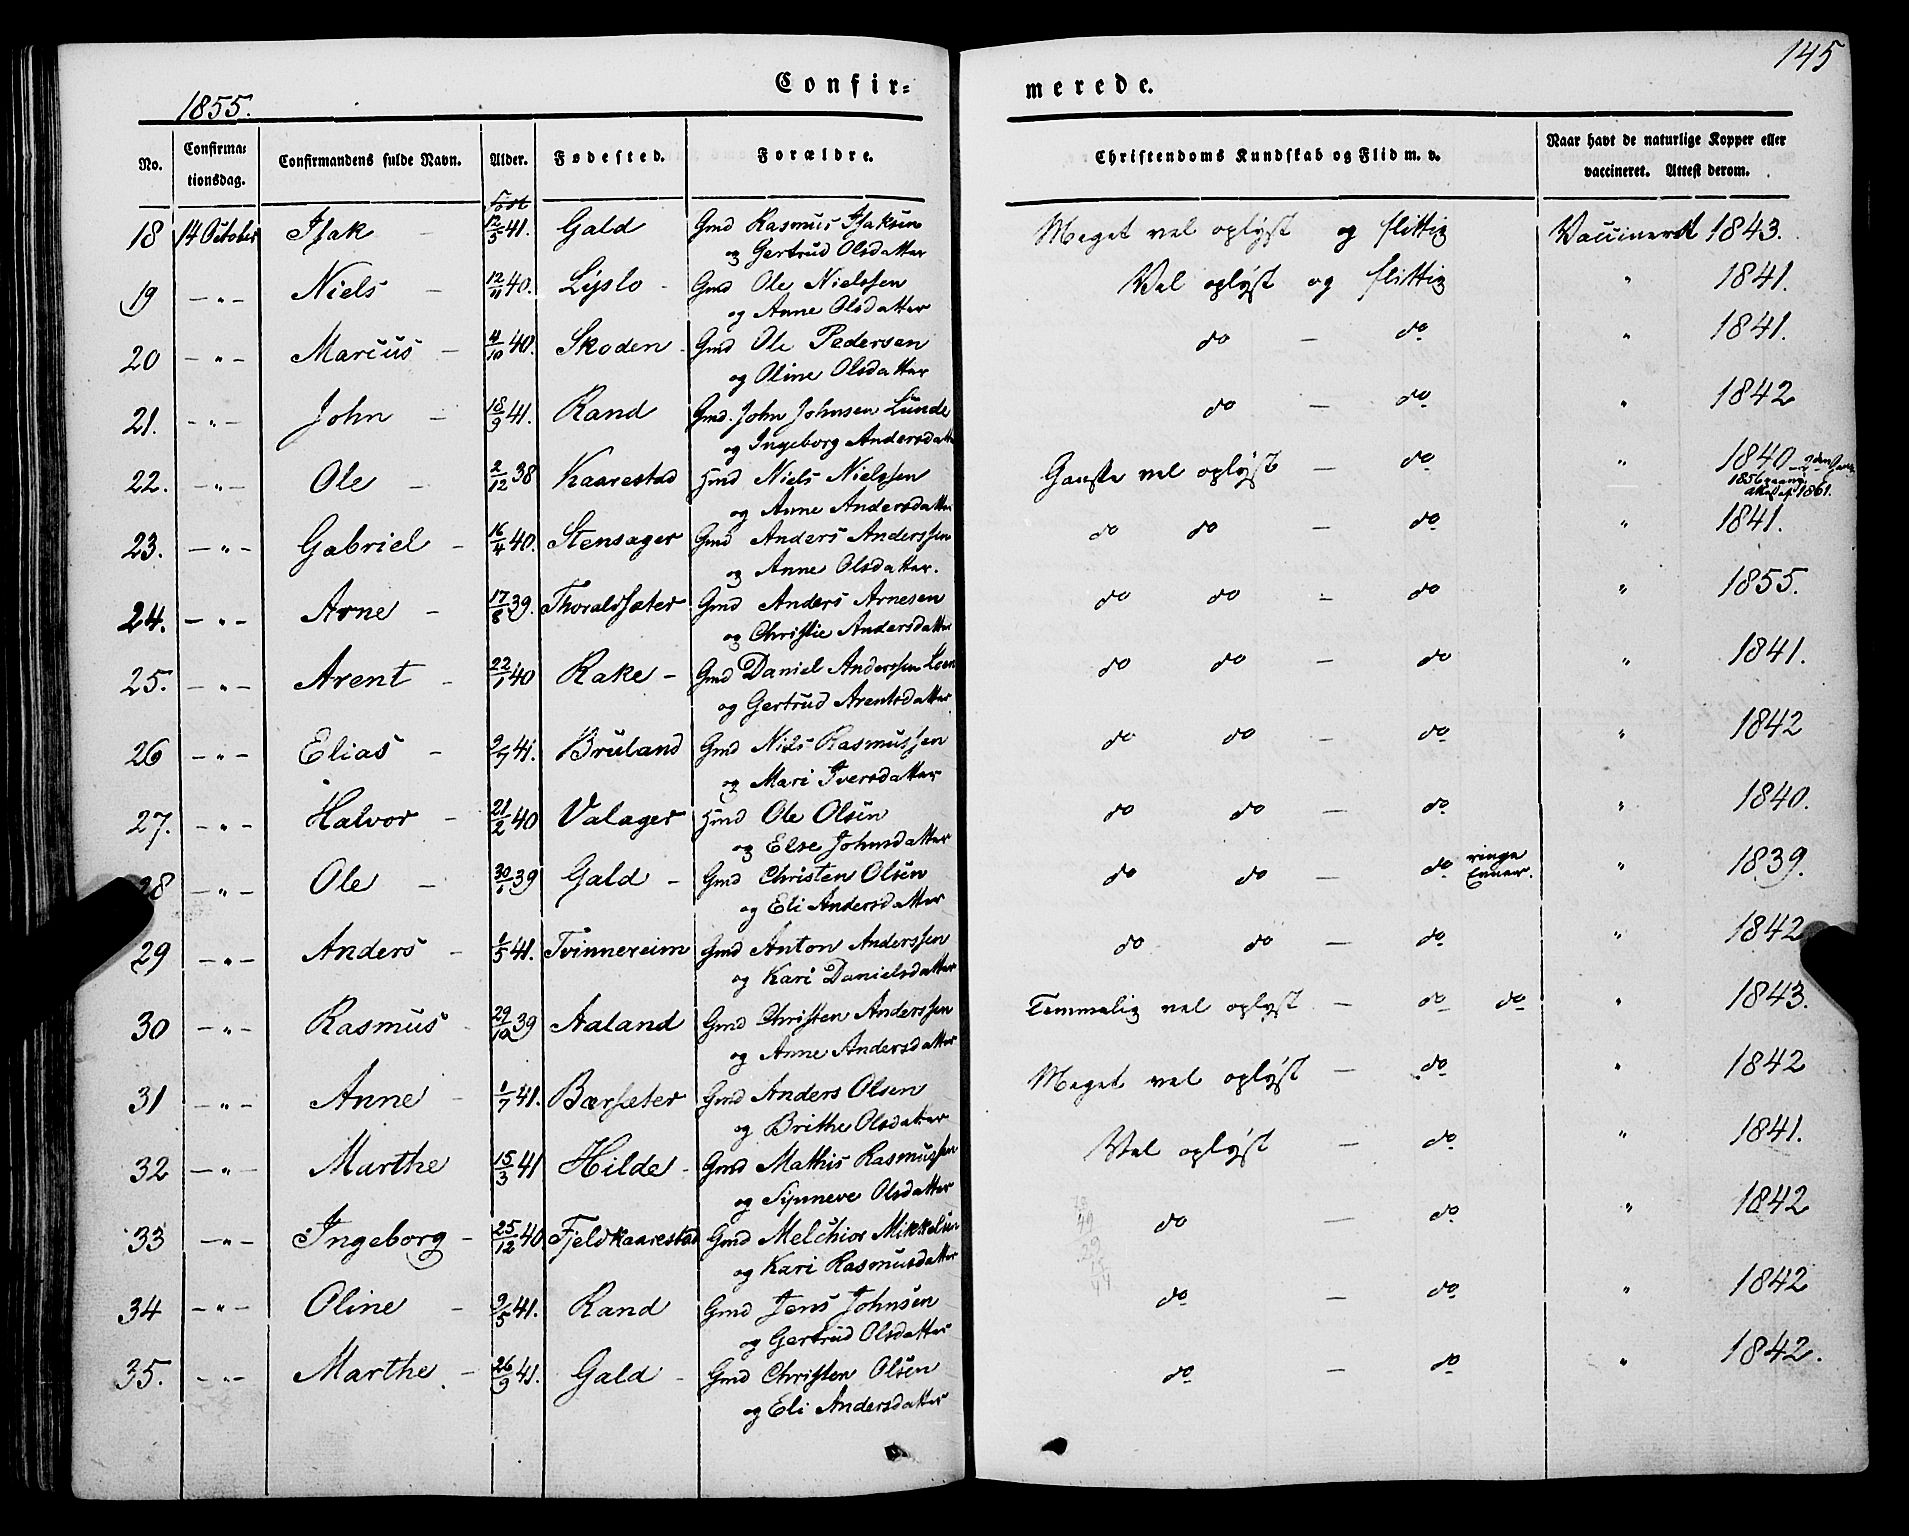 145
1855.
Confir= merede.
No. Confirma= tionsdag. Confirmandens fulde Navn. Alder. Fødested. Forældre. Christendoms Kundskab og Flid m. v. Naar havt de naturlige Kopper eller vaccineret. Attest derom.
Født
18 14 October Isak 12/5 41. Gald Gmd Rasmus Isaksen Meget vel oplyst og flittig Vaccineret 1843.
og Gertrud Olsdatter
19 —"— Niels — 12/11 40. Lyslo - Gmd Ole Nielssen Vel oplyst og flittig " 1841.
og Anne Olsdatter
20 —"— Marcus — 4/10 40. Skoden - Gmd Ole Pedersen do — do " 1841.
og Oline Olsdatter
21. —"— John — 18/9 41. Rand Gmd. John Johnsen Lunde do — do " 1842
og Ingeborg Andersdatter
22. —"— Ole - 2/12 38 Kaarestad Hmd Niels Nielssen Ganske vel oplyst — do " 1840
og Anne Andersdatter 1861.
23. —"— Gabriel - 16/4 40. Stensager Gmd Anders Anderssen do do — do " 1841.
og Anne Olsdatter.
24. —"— Arne - 17/8 39. Thoralssæter Gmd Anders Arnesen do do - do " 1855.
og Christie Andersdatter
25. —"— Arent - 22/1 40 Rake - Gmd Daniel Anderssen Loen do do — do " 1841.
og Gertrud Arentsdatter
26 —"— Elias - 2/7 41. Bruland Gmd Niels Rasmussen do do — do " 1842
og Mari Iversdatter
27. —"— Halvor - 21/2 40 Valager Hmd Ole Olsen do do — do " 1840.
og Else Johnsdatter
28 —"— Ole - 30/1 39 Gald - Gmd Christen Olsen do do — do ringe Evner. " 1839.
og Eli Andersdatter
29 —"— Anders - 1/5 41. Tvinnereim Gmd Anton Anderssen do do — do " 1842
og Kari Danielsdatter
30 —"— Rasmus - 29/12 39 Aaland Gmd Christen Anderssen Temmelig vel oplyst — do do " 1843.
og Anne Andersdatter
31 —"— Anne - 1/7 41. Bærsæter Gmd Anders Olsen Meget vel oplyst — do " 1842
og Brithe Olsdatter
32 —"— Marthe 15/3 41 Hilde - Gmd Mathis Rasmussen Vel oplyst — do " 1841.
og Synneve Olsdatter
33 —"— Ingeborg - 25/12 40 Fjeldkaarestad Gmd Melchior Mikkelsen do — do " 1842
og Kari Rasmusdatter
34 —"— Oline - 9/5 41. Rand Gmd Jens Johnsen do — do " 1842
og Gertrud Olsdatter
35. —"— Marthe - 26/9 41. Gald - Gmd Christen Olsen do — do " 1842.
og Eli Andersdatter